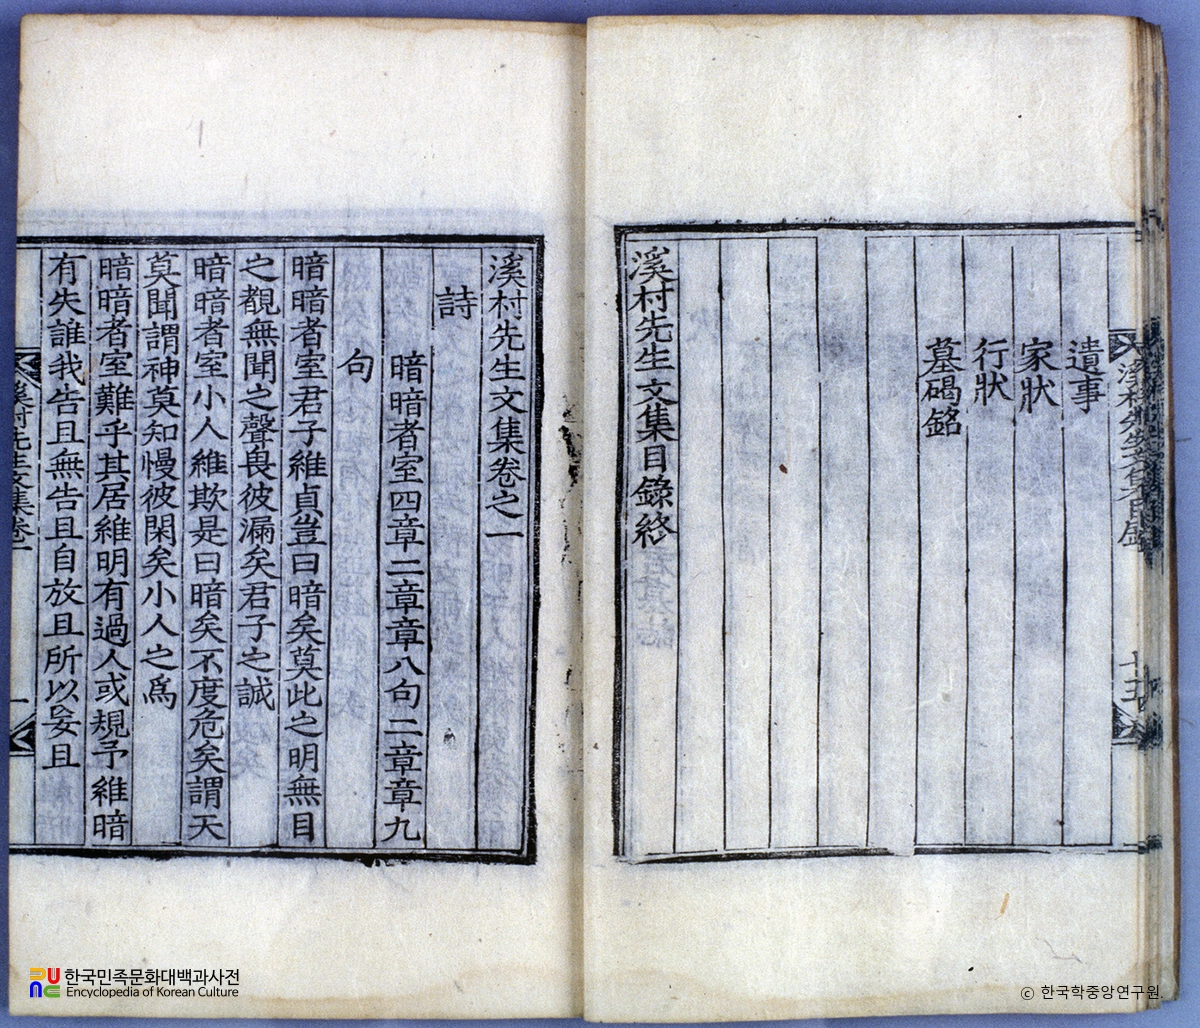 遺事
家狀
行狀
墓碣銘
溪村先生文集目錄終
溪村先生文集卷之一
詩
暗暗者室四章二章章八句二章章九
句
暗暗者室君子維貞豈曰暗矣莫此之明無目
之覩無聞之聲畏彼漏矣君子之誠
暗暗者室小人維欺是曰暗矣不度危矣謂天
莫聞謂神莫知慢彼閑矣小人之爲
暗暗者室難乎其居維明有過人或規予維暗
有失誰我告且無告且自放且所以妄且
溪村先生文集卷一
한국민족문화대백과사전
Encyclopedia of Korean Culture
ⓒ 한국학중앙연구원